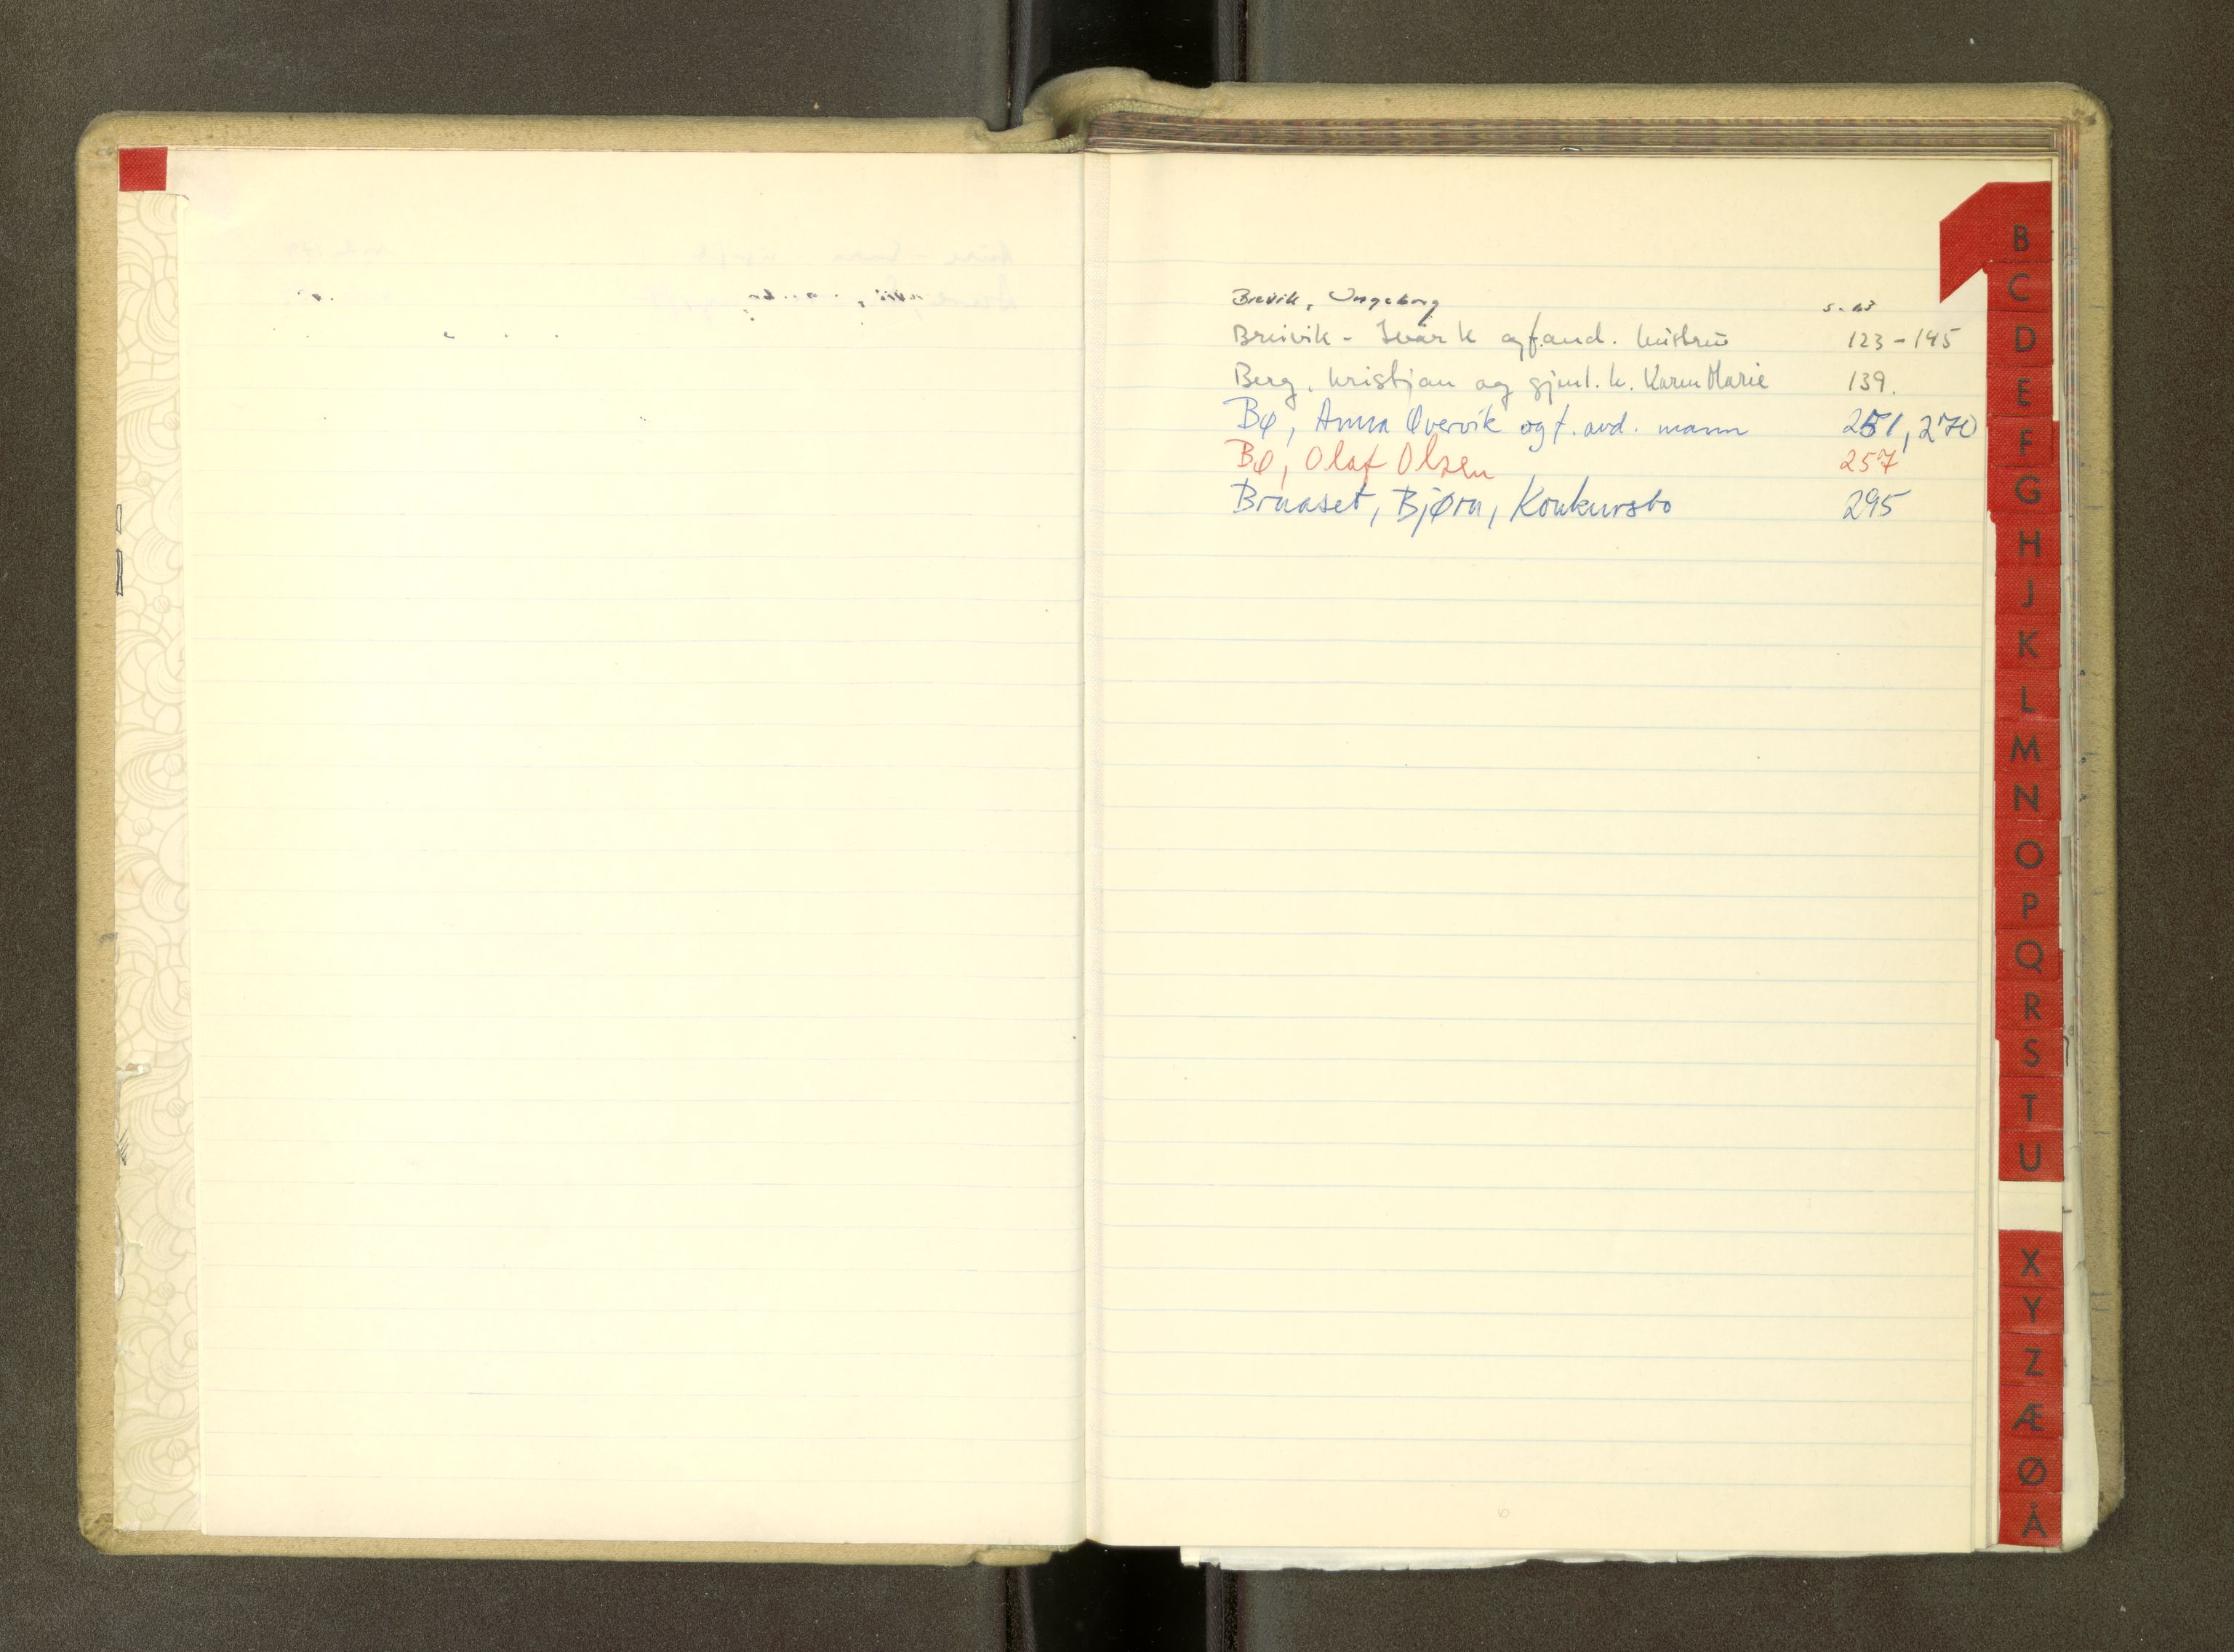 Brevik, Ingeborg s. 63
Breivik - Ivar K og f.avd. hustru 123-145
Berg, Kristjan og gjenl. h. Karen Marie 139.
Bø, Anna Øvervik og f. avd. mann 251, 270
Bø, Olaf Olsen 257
Braaset, Bjørn, Konkursbo 295
B
C
D
E
F
G
H
J
K
L
M
N
O
P
Q
R
S
T
U
X
Y
Z
Æ
Ø
Å